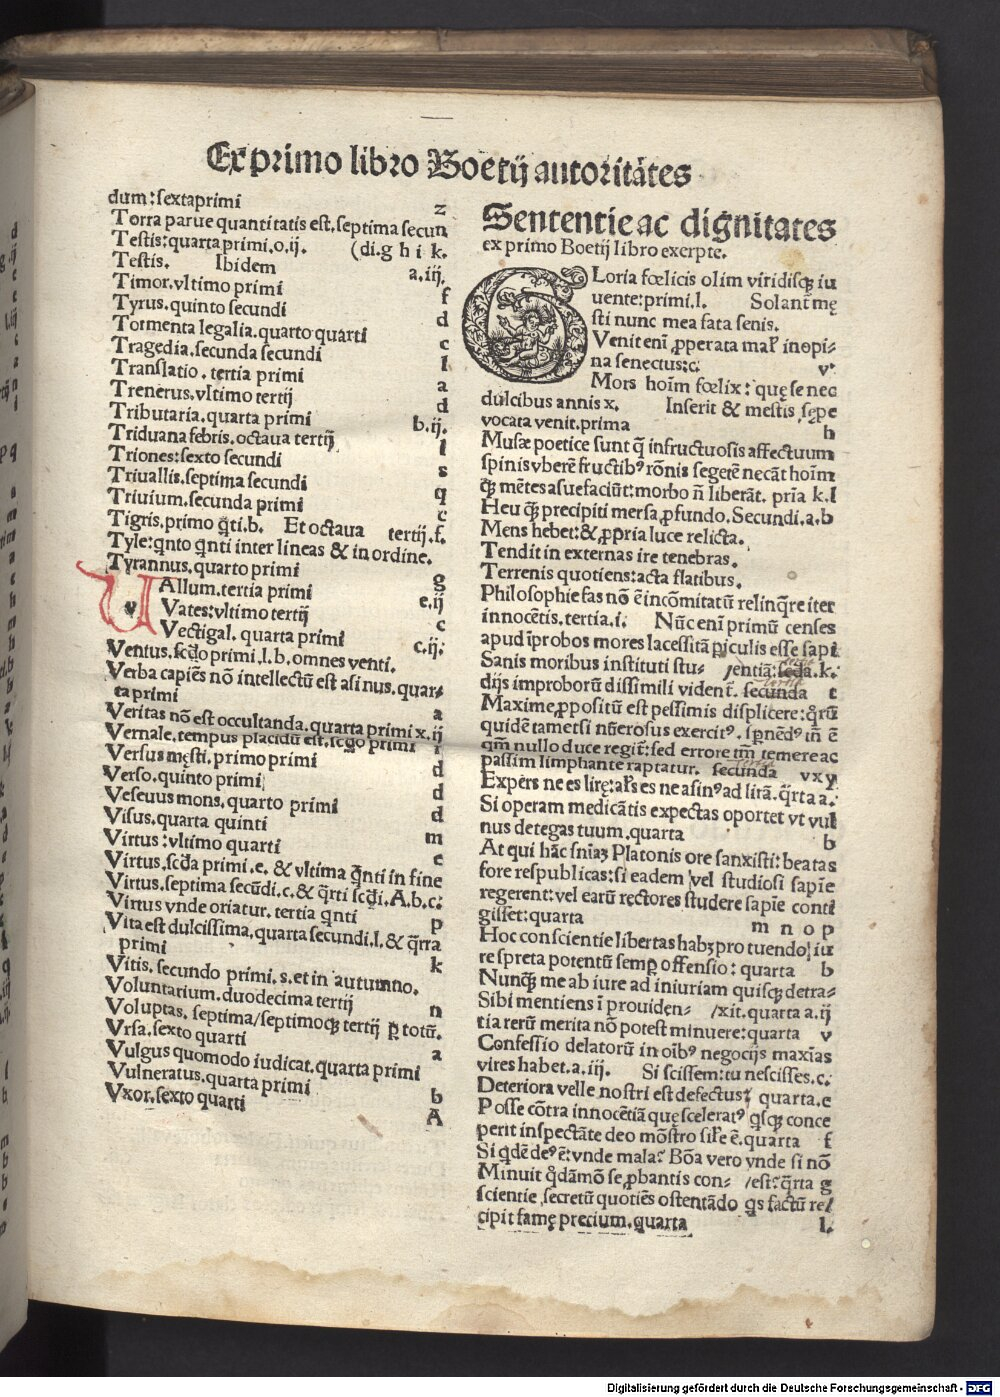 Ex primo libro Boetij autoritates
dum: sexta primi z
Torra parue quantitatis est. septima secun
Testis: quarta primi. o. ij. (di. g h i k.
Testis. Ibidem a. iij.
Timor. vltimo primi f
Tyrus. quinto secundi d
Tormenta legalia. quarto quarti c
Tragedia. secunda secundi l
Translatio. tertia primi a
Trenerus. vltimo tertij d
Tributaria. quarta primi b. ij.
Triduana febris. octaua tertij l
Triones: sexto secundi s
Triuallis. septima secundi q
Triuium. secunda primi c
Tigris. primo q̄ti. b. Et octaua tertij. f.
Tyle: q̄nto q̄nti inter lineas & in ordine.
Tyrannus. quarto primi g
VAllum. tertia primi e. ij
Vates: vltimo tertij c
Vectigal. quarta primi c. ij.
Ventus. scd̄o primi. l. b. omnes venti.
Verba capiēs nō intellectū est asinus. quar-
ta primi a
Veritas nō est occultanda. quarta primi x. ij
Vernale. tempus placidū est. scd̄o primi r
Versus męsti. primo primi d
Verso. quinto primi d
Veseuus mons. quarto primi d
Visus. quarta quinti m
Virtus: vltimo quarti e
Virtus. scd̄a primi. e. & vltima q̄nti in fine
Virtus. septima secūdi. c. & q̄rti scd̄i. A. b. c:
Virtus vnde oriatur. tertia q̄nti p
Vita est dulcissima. quarta secundi. l. & q̄rra
primi k
Vitis. secundo primi. s. et in autumno.
Voluntarium. duodecima tertij n
Voluptas. septima/septimoqꝫ tertij ꝑ totū.
Vrsa. sexto quarti a
Vulgus quomodo iudicat. quarta primi
Vulneratus. quarta primi b
Vxor. sexto quarti A
Sententie ac dignitates
ex primo Boetij libro excerpte.
GLoria fœlicis olim viridisqꝫ iu
uente: primi. l. Solant̄ mę
sti nunc mea fata senis.
Venit enī ꝓperata mal' inopi-
na senectus: c. v
Mors hoīm fœlix: quę se nec
dulcibus annis x. Inserit & mestis sępe
vocata venit. prima h
Musæ poetice sunt q̄ infructuosis affectuum
spinis vberē fructibꝰ rōnis segetē necāt hoīm
qꝫ mētes asuefaciūt: morbo n̄ liberāt. prīa k. l
Heu qꝫ precipiti mersa ꝓfundo. Secundi. a. b
Mens hebet: & ꝓpria luce relicta.
Tendit in externas ire tenebras.
Terrenis quotiens: acta flatibus.
Philosophie fas nō ē incōmitatū relinq̄re iter
innocētis. tertia. i. Nūc enī primū censes
apud īprobos mores lacessitā ꝑiculis esse sapi
Sanis moribus instituti stu- /entiā: scd̄a. k:
dijs improborū dissimili vident̄. secunda t
Maxime ꝓpositū est pessimis displicere: q̄rū
quidē tametsi nūerosus exercitꝰ. spnēdꝰ tn̄ ē
qm̄ nullo duce regit̄: sed errore tm̄ temere ac
passim limphante raptatur. secunda v x y
Expers ne es lirę: al's es ne asinꝰ ad lirā. q̄rta a:
Si operam medicātis expectas oportet vt vul
nus detegas tuum. quarta b
At qui hāc sn̄iaꝫ Platonis ore sanxisti: beatas
fore respublicas: si eadem vel studiosi sapīe
regerent: vel earū rectores studere sapīe conti
gisset: quarta m n o p
Hoc conscientie libertas habꝫ pro tuendo iu
re spreta potentū semꝑ offensio: quarta b
Nunqꝫ me ab iure ad iniuriam quisqꝫ detra-
Sibi mentiens ī prouiden- /xit. quarta a. ij
tia rerū merita nō potest minuere: quarta v
Confessio delatorū in oībꝰ negocijs maxīas
vires habet. a. iij. Si scissem: tu nescisses. c:
Deteriora velle nostri est defectus: quarta. e
Posse cōtra innocētiā quę sceleratꝰ q̄sqꝫ conce
perit inspectāte deo mōstro sil'e ē. quarta f
Si q̄dē deꝰ ē: vnde mala? Bōa vero vnde si nō
Minuit q̄dāmō se ꝓbantis con- /est: q̄rta g
scientie secretū quotiēs ostentādo q̄s factū re/
cipit famę precium. quarta l.
Digitalisierung gefördert durch die Deutsche Forschungsgemeinschaft - DFG